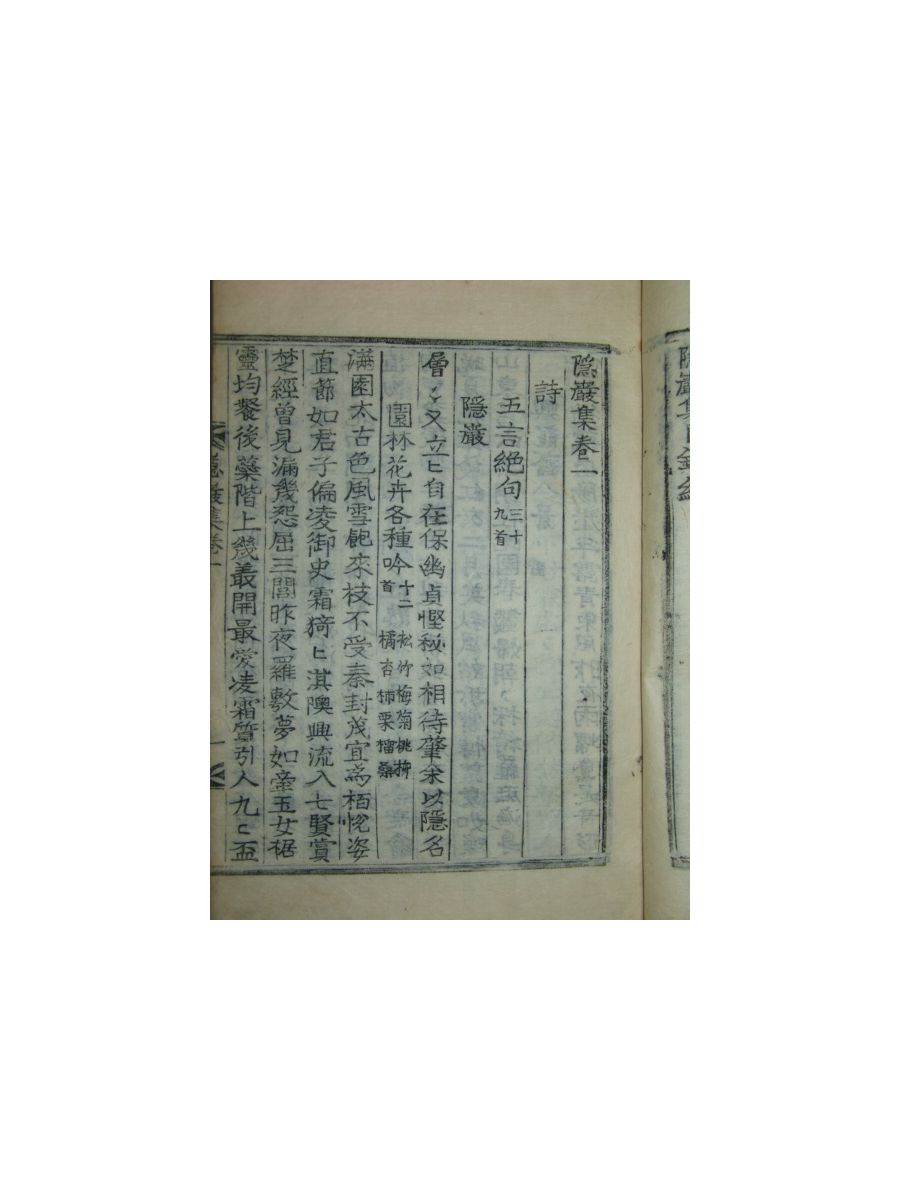 隱巖集卷一
詩
五言絶句 三十九首
隱巖
層〻又立〻自在保幽貞慳秘如相待肇余以隱名
園林花卉各種吟 十二首 松竹梅菊桃柳橘杏柿栗榴桑
滿園太古色風雪飽來枝不受秦封茂宜爲栢悅姿
直節如君子偏凌御史霜猗〻淇隩興流入七賢賞
楚經曾見漏幾怨屈三閭昨夜羅敷夢如牽玉女裾
靈均餐後蘂階上幾叢開最愛凌霜質引人九〻盃
隱巖集卷一
一
隱巖集目錄終